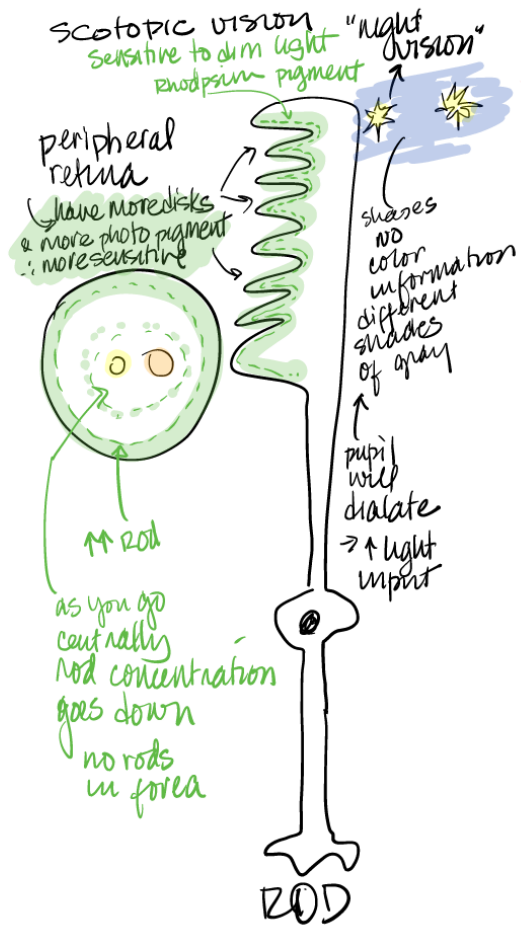 scotopic vision
sensitive to dim light
Rhodpsium pigment
"night
vision"
peripheral
retina
have more disks
& more photo pigment
∴ more sensitive
shades
no
color
information
different
shades
of gray
pupil
will
dialate
→ ↑ light
input
↑↑ ROD
as you go
centrally
rod concentration
goes down
no rods
in fovea
ROD